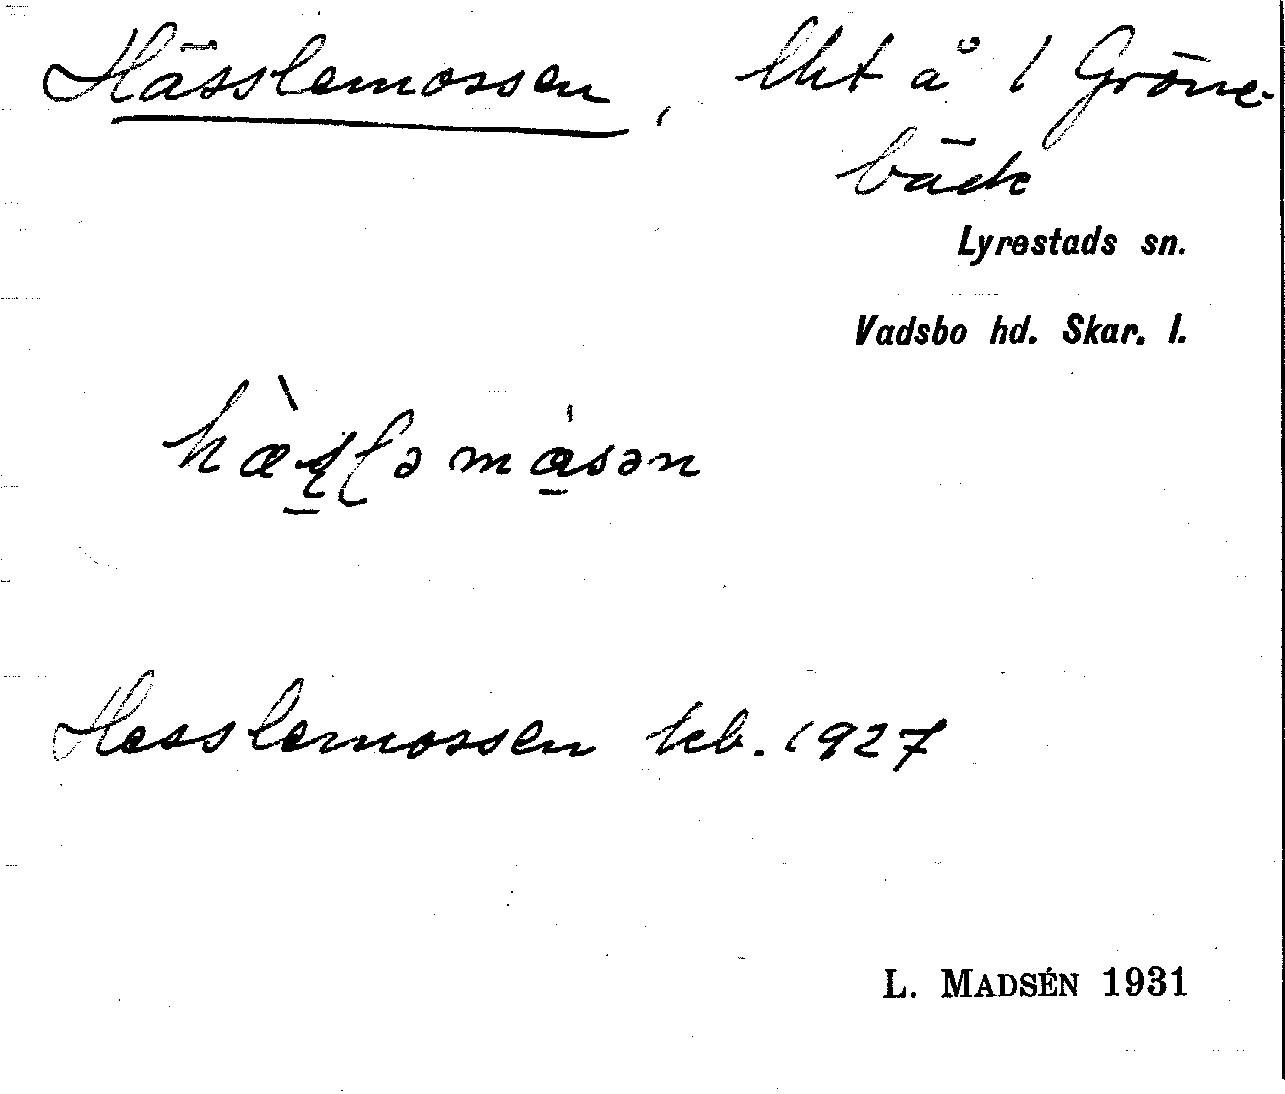 Hässlemossen, lht å 1 Gröne-
bäck
Lyrestads sn.
Vadsbo hd. Skar. l.
Hesslemossen keb. 1927
L. MADSÉN 1931